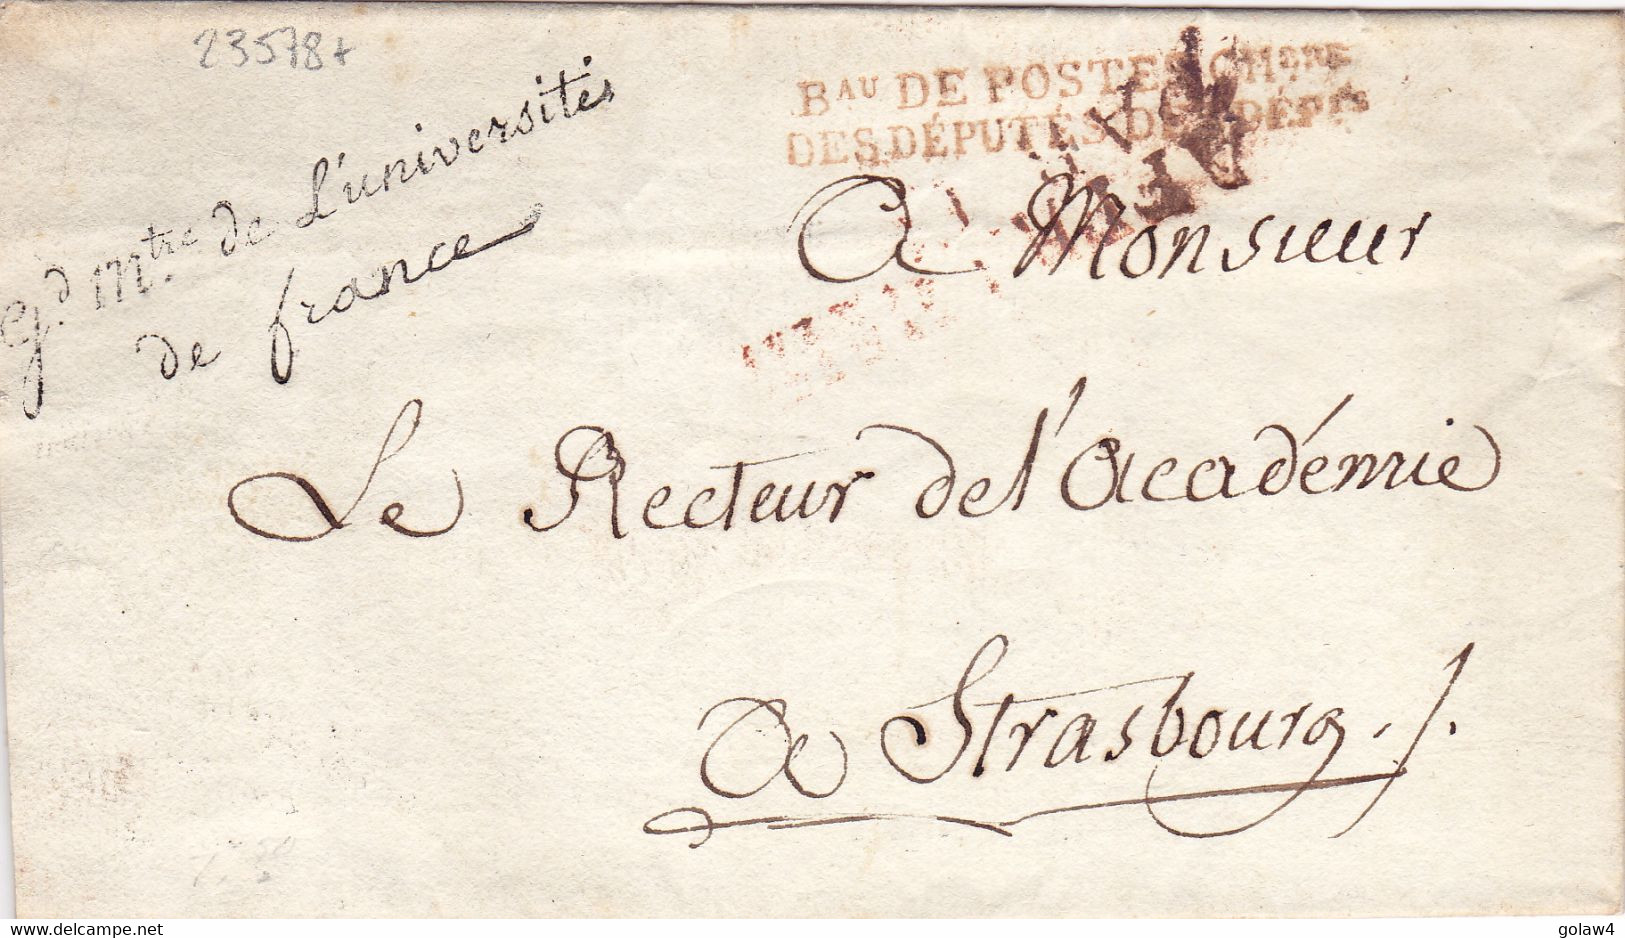 23578+
Gd. Mtre. de L'universités
de france
BAU DE POSTES CHBRE
DES DÉPUTÉS DES DÉPTS
A Monsieur
Le Recteur de l'Académie
A Strasbourg./.
www.delcampe.net
golaw4